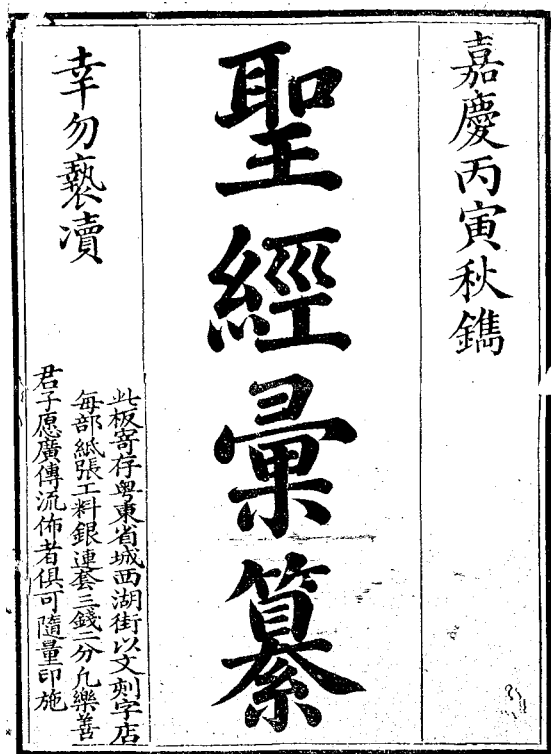 嘉慶丙寅秋鐫
聖經彙纂
幸勿褻瀆
此板寄存粵東省城西湖街以文刻字店
每部紙張工料銀連套三錢二分凡樂善
君子愿廣傳流佈者俱可隨量印施